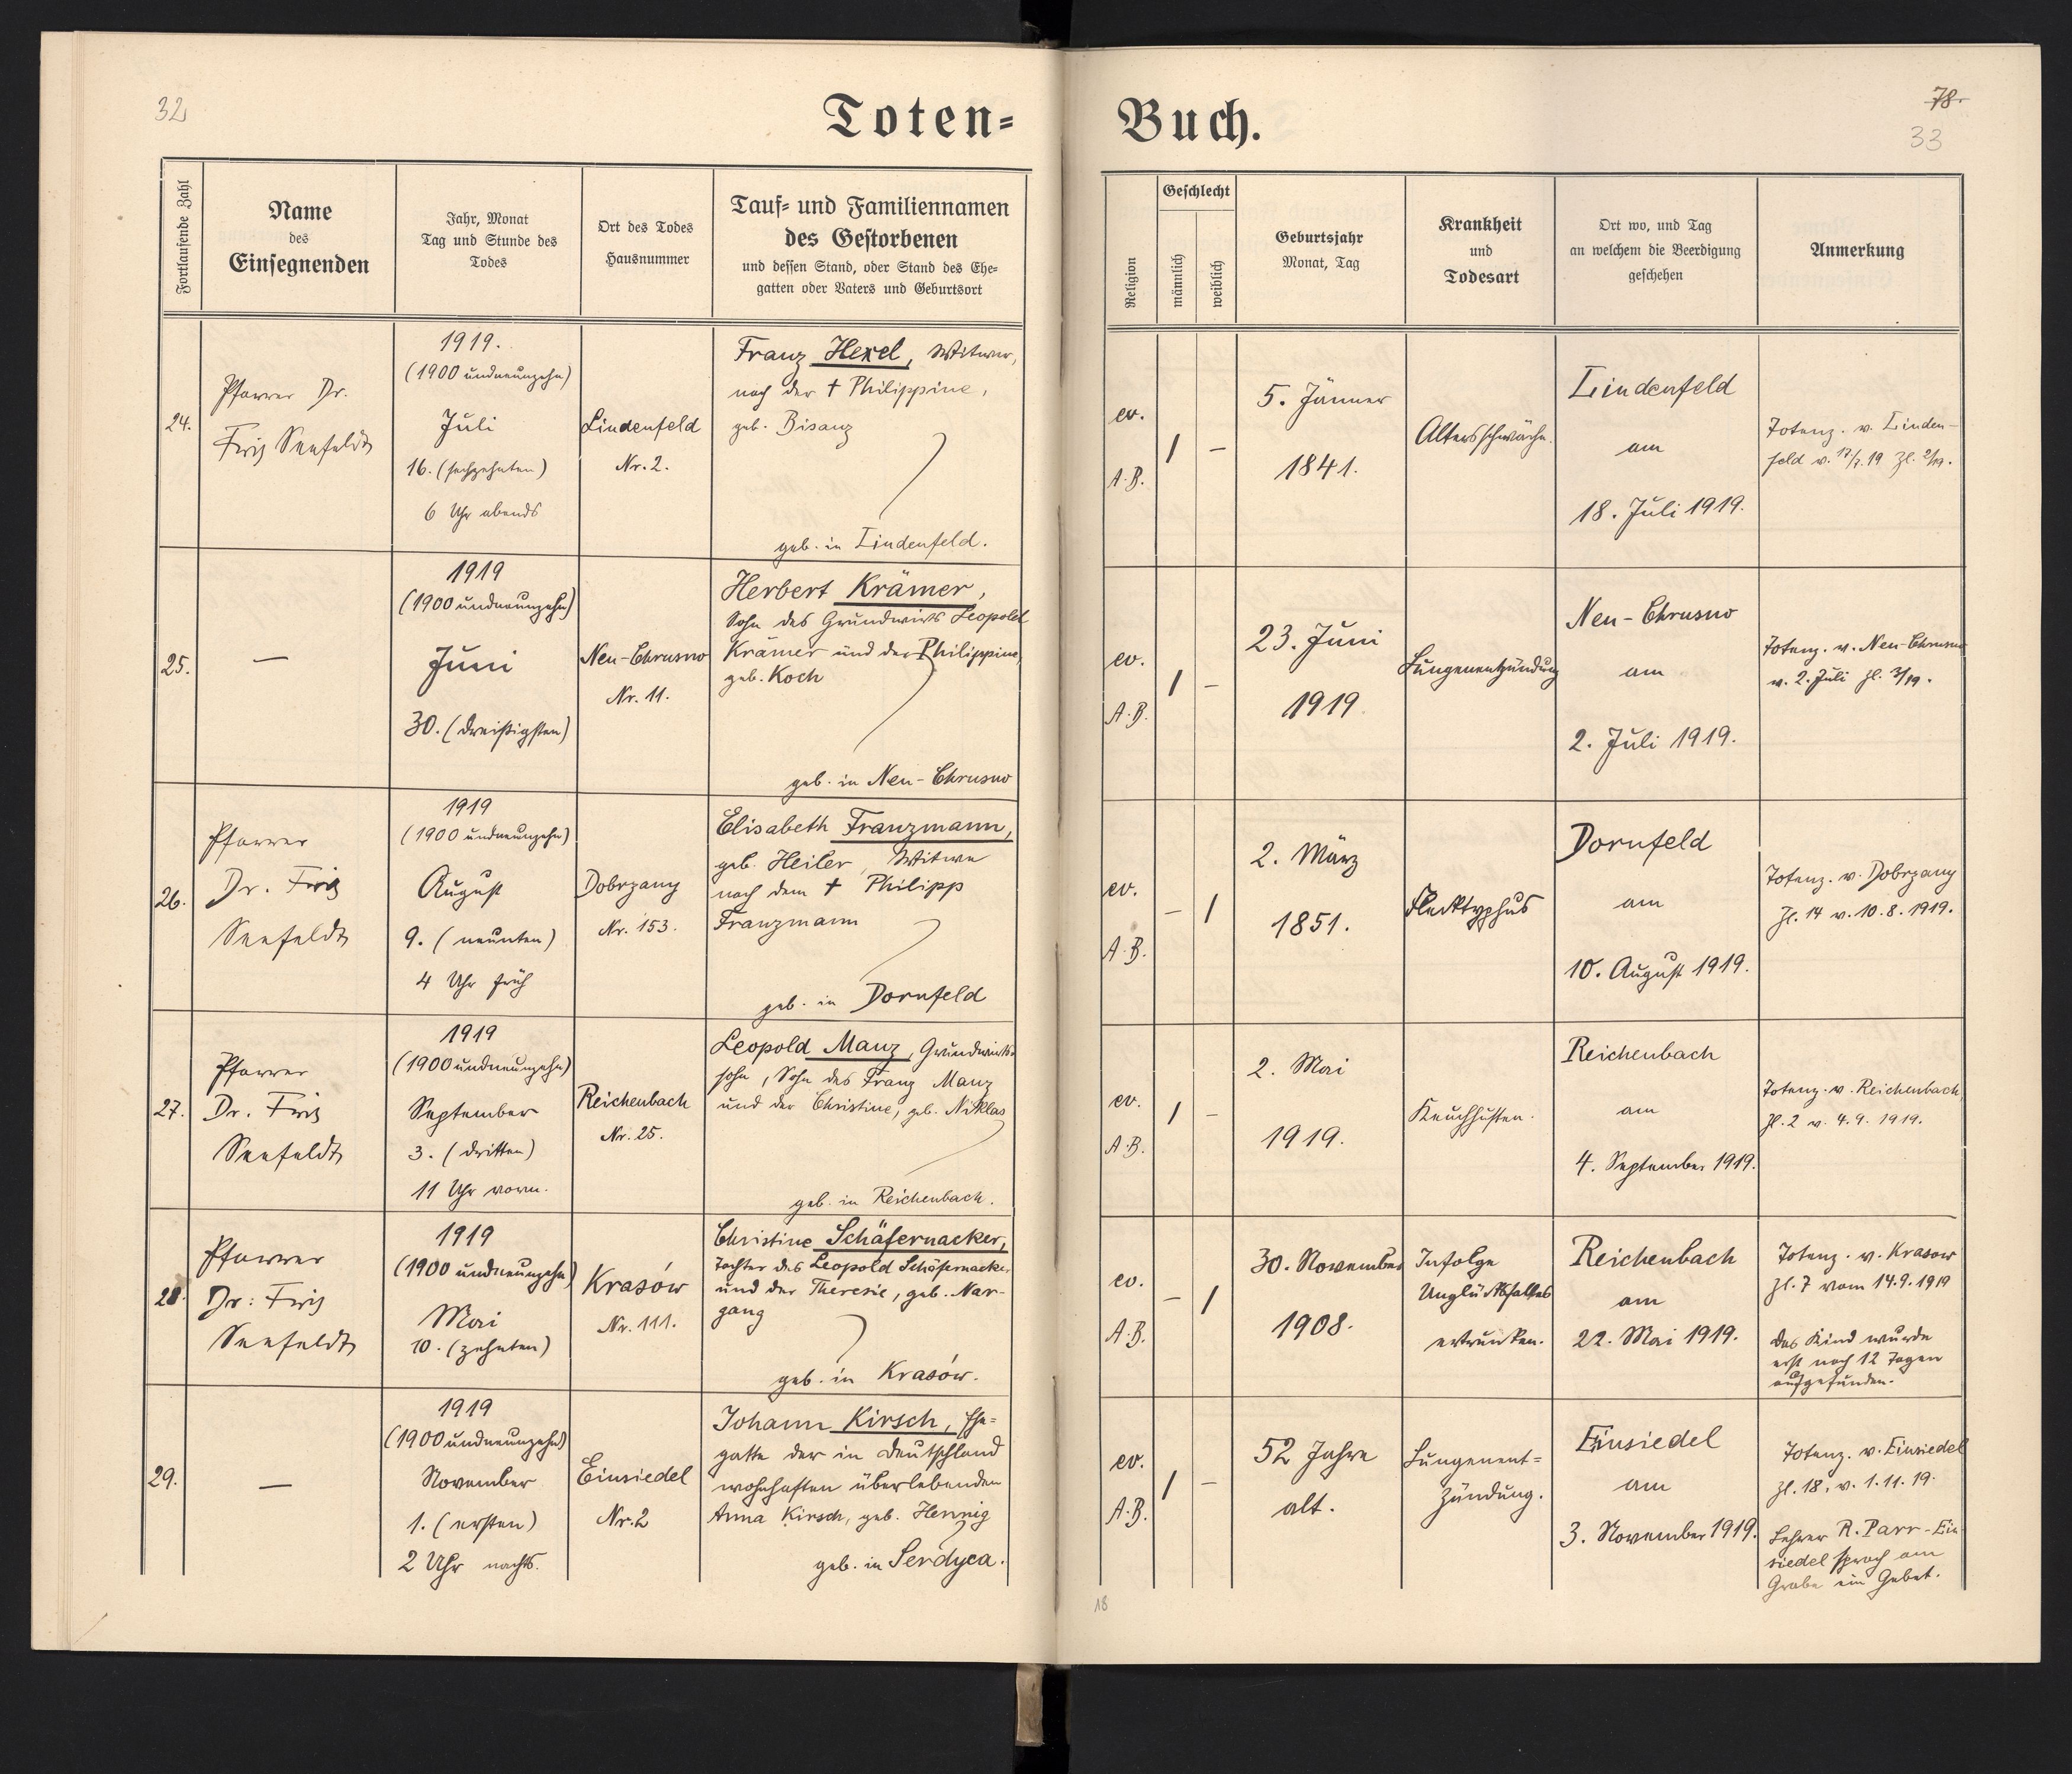 32
Toten=
Fortlaufende Zahl
Name
des
Einsegnenden
Jahr, Monat
Tag und Stunde des
Todes
Ort des Todes
Hausnummer
Tauf= und Familiennamen
des Gestorbenen
und dessen Stand, oder Stand des Ehe=
gatten oder Vaters und Geburtsort
24.
Pfarrer Dr.
Fritz Seefeldt
1919.
(1900 undneunzehn)
Juli
16. (sechzehnten)
6 Uhr abends
Lindenfeld
Nr. 2.
Franz Hexel, Witwer,
nach der † Philippine,
geb. Bisanz
geb. in Lindenfeld.
25.
—
1919
(1900 undneunzehn)
Juni
30. (dreißigsten)
Neu-Chrusno
Nr. 11.
Herbert Krämer,
Sohn des Grundwirts Leopold
Krämer und der Philippine,
geb. Koch
geb. in Neu-Chrusno
26.
Pfarrer
Dr. Fritz
Seefeldt
1919
(1900 undneunzehn)
August
9. (neunten)
4 Uhr früh
Dobrzany
Nr. 153.
Elisabeth Franzmann,
geb. Heiler, Witwe
nach dem † Philipp
Franzmann
geb. in Dornfeld
27.
Pfarrer
Dr. Fritz
Seefeldt
1919
(1900 undneunzehn)
September
3. (dritten)
11 Uhr vorm.
Reichenbach
Nr. 25.
Leopold Manz, Grundwirts=
sohn, Sohn des Franz Manz
und der Christine, geb. Niklas
geb. in Reichenbach.
28.
Pfarrer
Dr. Fritz
Seefeldt
1919
(1900 undneunzehn)
Mai
10. (zehnten)
Krasów
Nr. 111.
Christine Schäfernacker,
Tochter des Leopold Schäfernacker
und der Theresie, geb. Nar-
gang
geb. in Krasów.
29.
—
1919
(1900 undneunzehn)
November
1. (ersten)
2 Uhr nachts.
Einsiedel
Nr. 2
Johann Kirsch, Ehe=
gatte der in Deutschland
wohnhaften überlebenden
Anna Kirsch, geb. Hennig
geb. in Serdyca.
Buch.
78.
33
Religion
Geschlecht
männlich
weiblich
Geburtsjahr
Monat, Tag
Krankheit
und
Todesart
Ort wo, und Tag
an welchem die Beerdigung
geschehen
Anmerkung
ev.
A. B.
1 –
5. Jänner
1841.
Altersschwäche.
Lindenfeld
am
18. Juli 1919.
Totenz. v. Linden-
feld v. 17/7. 19 Zl. 2/19.
ev.
A. B.
1 –
23. Juni
1919
Lungenentzündung
Neu-Chrusno
am
2. Juli 1919.
Totenz. v. Neu-Chrusno
v. 2. Juli Zl. 3/19.
ev.
A. B.
– 1
2. März
1851.
Flecktyphus
Dornfeld
am
10. August 1919.
Totenz. v. Dobrzany
Zl. 14 v. 10. 8. 1919.
ev.
A. B.
1 –
2. Mai
1919.
Keuchhusten.
Reichenbach
am
4. September 1919.
Totenz. v. Reichenbach,
Zl. 2 v. 4. 9. 1919.
ev.
A. B.
– 1
30. November
1908.
Infolge
Unglücksfalles
ertrunken.
Reichenbach
am
22. Mai 1919.
Totenz. v. Krasow
Zl. 7 vom 14. 9. 1919
das Kind wurde
erst nach 12 Tagen
aufgefunden.
ev.
A. B.
1 –
52 Jahre
alt.
Lungenent=
zündung.
Einsiedel
am
3. November 1919.
Totenz. v. Einsiedel
Zl. 18. v. 1. 11. 19.
Lehrer R. Parr-Ein-
siedel sprach am
Grabe ein Gebet.
18